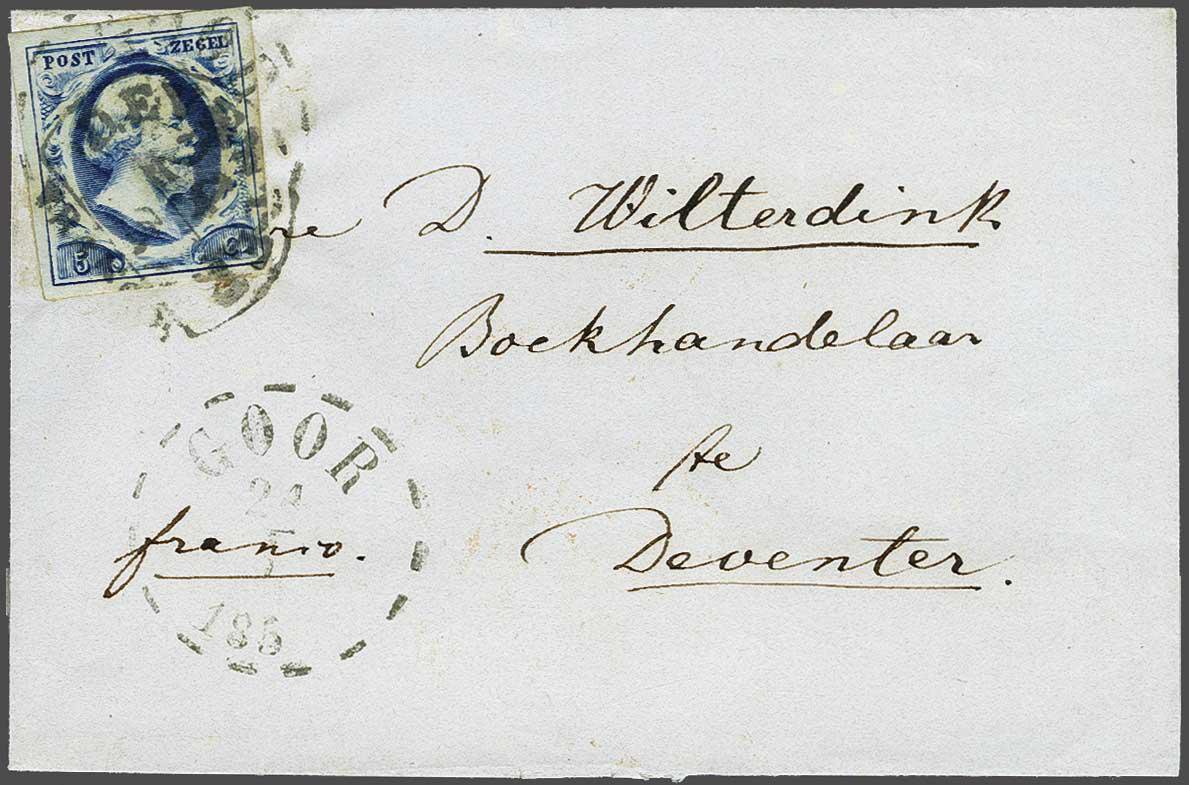 POST ZEGEL
5 C
re D. Wilterdink
Boekhandelaar
te
Deventer.
GOOR
24
franco.
185